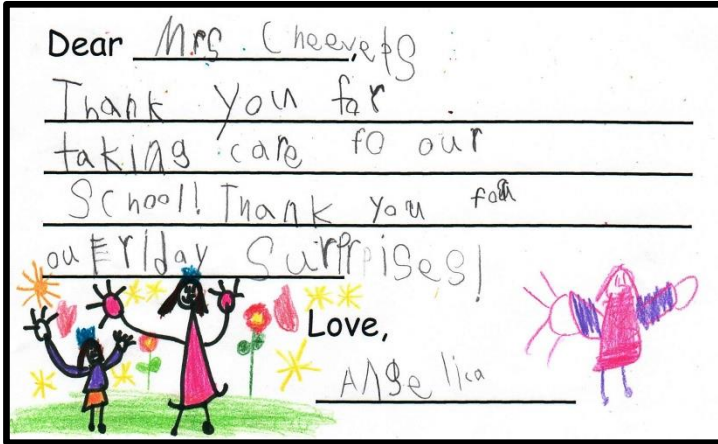 Dear Mrs Cheevers
Thank you for
taking care fo our
School! Thank you for
ou Friday Surprises!
Love,
Angelica